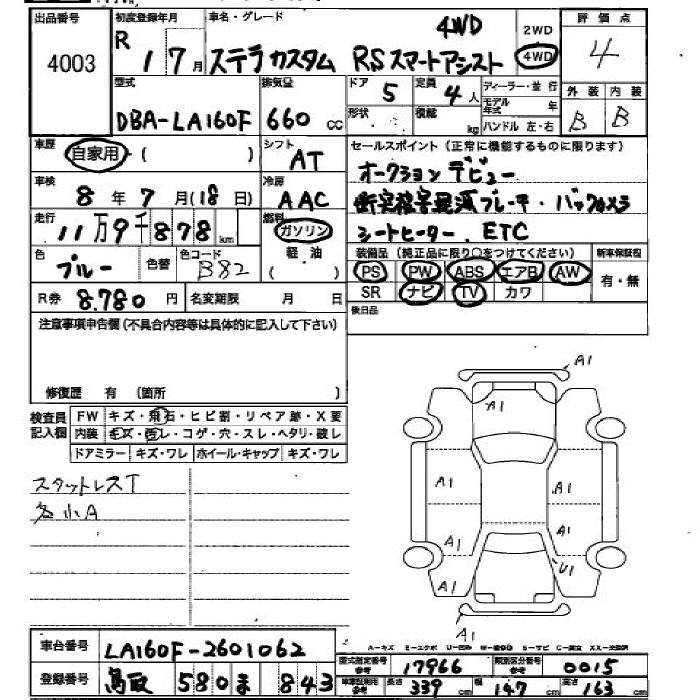 出品番号 初度登録年月 車名・グレード 4WD 2WD 評価点
4003 R 1 7月 ステラカスタム RSスマートアシスト 4WD 4
型式 排気量 ドア 5 定員 4人 ディーラー・並行 外装 内装
DBA-LA160F 660cc 形状 積載 kg モデル年式 年 ハンドル 左・右 B B
車歴 自家用・( ) シフト AT セールスポイント(正常に機能するものに限ります)
オークションデビュー
車検 8年7月(18日) 冷房 AAC
衝突被害軽減ブレーキ・バックカメラ
走行 11万9千878km 燃料 ガソリン 軽油 ( )
シートヒーター. ETC
色 ブルー 色替 色コード B82
装備品(純正品に限り○をつけてください) 新車保証書
PS PW ABS エアB AW 有・無
R券 8.780円 名変期限 月 日
SR ナビ TV カワ
注意事項申告欄(不具合内容等は具体的に記入して下さい) 後日品
修復歴 有 (箇所 )
検査員記入欄 FW キズ・飛石・ヒビ割・リペア跡・X要
内装 キズ・汚レ・コゲ・穴・スレ・ヘタリ・破レ
ドアミラー キズ・ワレ ホイール・キャップ キズ・ワレ
スタットレスT
多小A
A1
A1
A1 A1
A1 A1
A1 U1
A1
車台番号 LA160F-2601062
A-キズ E-エクボ U-凹み
型式指定番号 参考 17966 類別区分番号 参考 0015
登録番号 鳥取 580 ま 843
車庫証明用 参考 長さ 339cm 幅 147cm 高さ 163cm